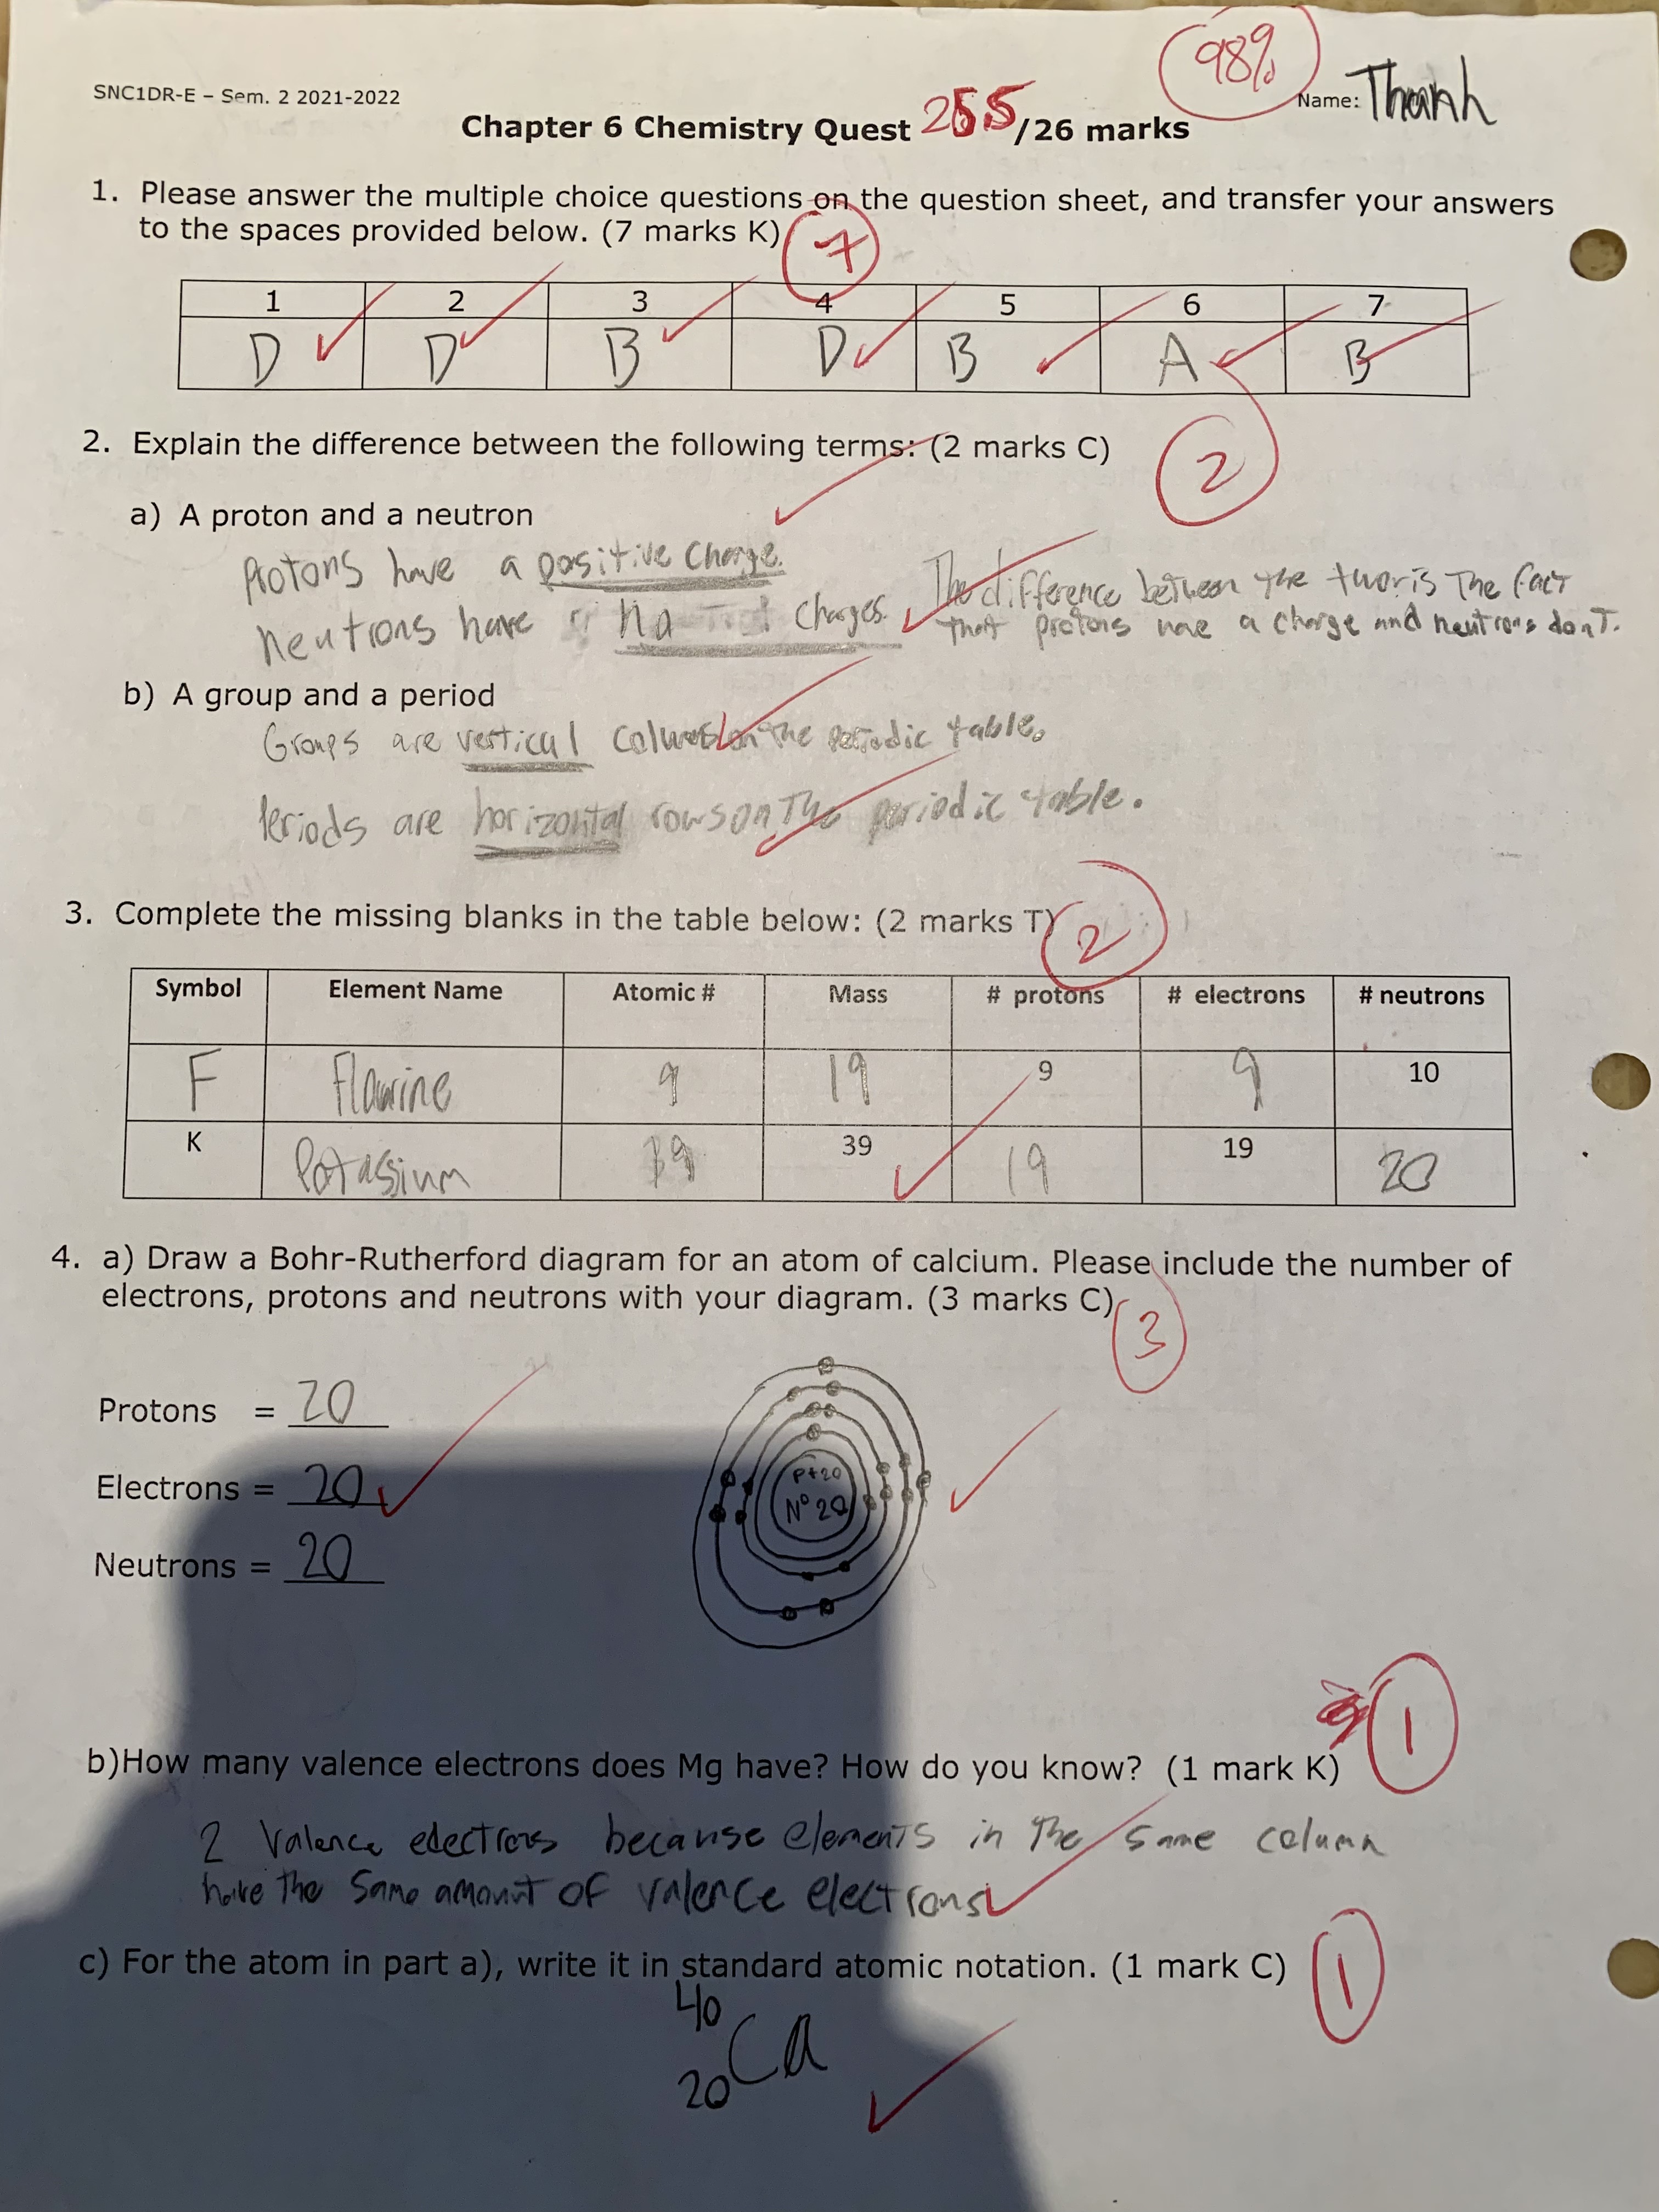 98%
SNC1DR-E – Sem. 2 2021-2022
Name: Thanh
Chapter 6 Chemistry Quest 25.5/26 marks
1. Please answer the multiple choice questions on the question sheet, and transfer your answers
to the spaces provided below. (7 marks K) 7
1 2 3 4 5 6 7
D D B D B A B
2. Explain the difference between the following terms: (2 marks C) 2
a) A proton and a neutron
Protons have a positive charge.
neutrons have no charges. The difference between the two is The fact
that protons have a charge and neutrons donT.
b) A group and a period
Groups are vertical on the periodic table.
Periods are horizontal rows on The periodic table.
3. Complete the missing blanks in the table below: (2 marks T) 2
Symbol Element Name Atomic # Mass # protons # electrons # neutrons
F Flourine 9 19 9 9 10
K Potassium 19 39 19 19 20
4. a) Draw a Bohr-Rutherford diagram for an atom of calcium. Please include the number of
electrons, protons and neutrons with your diagram. (3 marks C) 3
Protons = 20
Electrons = 20
Neutrons = 20
P+20
N° 20
b)How many valence electrons does Mg have? How do you know? (1 mark K) 1
2 Valence electrons because elements in The same column
have The Same amount of valence electrons
c) For the atom in part a), write it in standard atomic notation. (1 mark C) 1
40
Ca
20